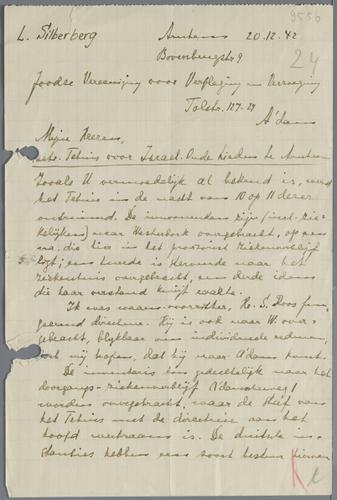 9556
L. Silberberg Arnhem 20.12.42
Bovenbrugstr 9
24
Joodse Vereeniging voor Verpleging en Verzorging
Tolstr. 127-29
A'dam
Mijne Heeren,
betr. Tehuis voor Israel. Oude Lieden te Arnhem
Zooals U vermoedelijk al bekend is, werd
het Tehuis in de nacht van 10 op 11 dezer
ontruimd. De inwonenden zijn (incl. zie-
kelijken) naar Westerbork overgebracht, op een
na, die hier in het provinciaal ziekenverblijf
ligt; een tweede is heropende naar het
ziekenhuis overgebracht, een derde idem
die haar verstand kwijt raakte.
Ik was waarn. voorzitter, Hr. S. Roos fun-
geerend directeur. Hij is ook naar W. over-
gebracht, blijkbaar om individueele redenen,
ook wij hopen, dat hij naar A'dam komt.
De inventaris kon gedeeltelijk naar het
doorgangs-ziekenverblijf
worden overgebracht, waar de staf van
het Tehuis met de directrice aan het
hoofd werkzaam is. De duitsche in-
stanties hebben een soort bestuur hiervan